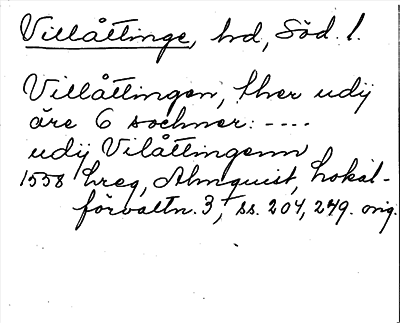 Villåttinge, hd, Söd. l.
Villåttingen, ther udij
äre 6 sochner: ----
udij Vilåttingenn
1558 hreg, Almquist, Lokal-
förvaltn. 3, ss. 204, 279. orig.